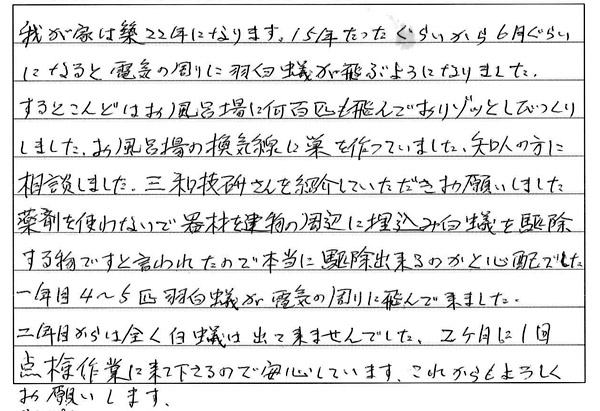 我が家は築22年になります。15年たったぐらいから6月ぐらい
になると電気の周りに羽白蟻が飛ぶようになりました。
するとこんどはお風呂場に何百匹も飛んでおりゾッとしびっくり
しました。お風呂場の換気線に巣を作っていました。知人の方に
相談しました。三和技研さんを紹介していただきお願いしました
薬剤を使わないで器材を建物の周辺に埋込み白蟻を駆除
する物ですと言われたので本当に駆除出来るのかと心配でした
一年目4～5匹羽白蟻が電気の周りに飛んで来ました。
二年目からは全く白蟻は出て来ませんでした。2ヶ月に1回
点検作業に来て下さるので安心しています。これからもよろしく
お願いします。